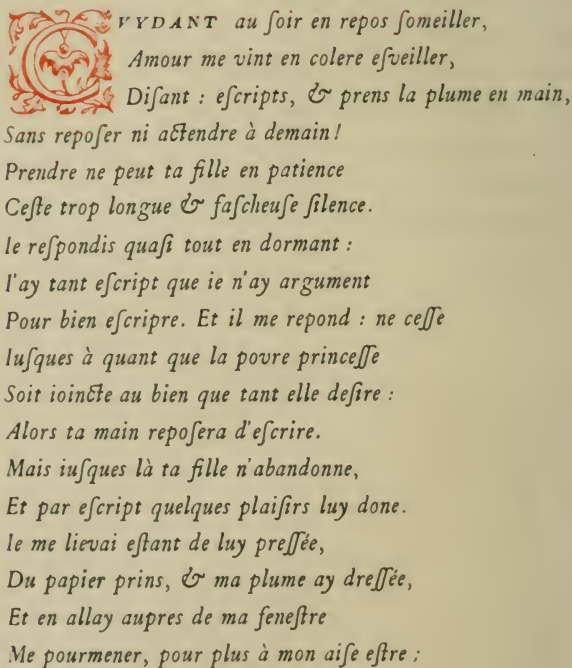 CVYDANT au ſoir en repos ſomeiller,
Amour me vint en colere eſveiller,
Diſant : eſcripts, & prens la plume en main,
Sans repoſer ni actendre à demain!
Prendre ne peut ta fille en patience
Ceſte trop longue & faſcheuſe ſilence.
Ie reſpondis quaſi tout en dormant :
I'ay tant eſcript que ie n'ay argument
Pour bien eſcripre. Et il me repond : ne ceſſe
Iuſques à quant que la povre princeſſe
Soit ioincte au bien que tant elle deſire :
Alors ta main repoſera d'eſcrire.
Mais iuſques là ta fille n'abandonne,
Et par eſcript quelques plaiſirs luy done.
Ie me lievai eſtant de luy preſſée,
Du papier prins, & ma plume ay dreſſée,
Et en allay aupres de ma feneſtre
Me pourmener, pour plus à mon aiſe eſtre ;